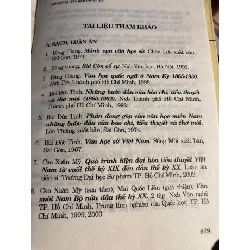 TÀI LIỆU THAM KHẢO
A. SÁCH, LUẬN ÁN
1. Bằng Giang, Mảnh vụn văn học sử, Chân Lưu xuất bản, Sài Gòn, 1974.
2. Bằng Giang, Sài Côn cố sự, Nxb Văn học, Hà Nội, 1999.
3. Bằng Giang, Văn học quốc ngữ ở Nam Kỳ 1865-1930, Nxb Trẻ, Thành phố Hồ Chí Minh, 1998.
4. Bùi Đức Tịnh, Những bước đầu của báo chí, tiểu thuyết và thơ mới (1865-1932), Nxb Thành phố Hồ Chí Minh,
5. Bùi Đức Tịnh, Phần đóng góp của văn học miền Nam: những bước đầu của báo chí, tiểu thuyết và thơ mới, Lửa Thiêng xuất bản, Sài Gòn, 1974.
6. Bùi Đức Tịnh, Văn học sử Việt Nam,
Sài Gòn, 1967.
7. Cao Xuân Mỹ, Quá trình hiện đại hóa tiểu thuyết Việt Nam từ cuối thế kỷ XIX đến đầu thế kỷ XX, Luận án
Trường Đại học Sư phạm TP. Hồ Chí Minh,
8. Cao Xuân Mỹ (sưu tầm), Mai Quốc Liên (giới thiệu), Văn xuôi Nam Bộ nửa đầu thế kỷ XX, 2 tập, Nxb Văn nghệ TP. Hồ Chí Minh, Trung tâm nghiên cứu Quốc học, TP. Hồ Chí Minh, 1999, 2000.